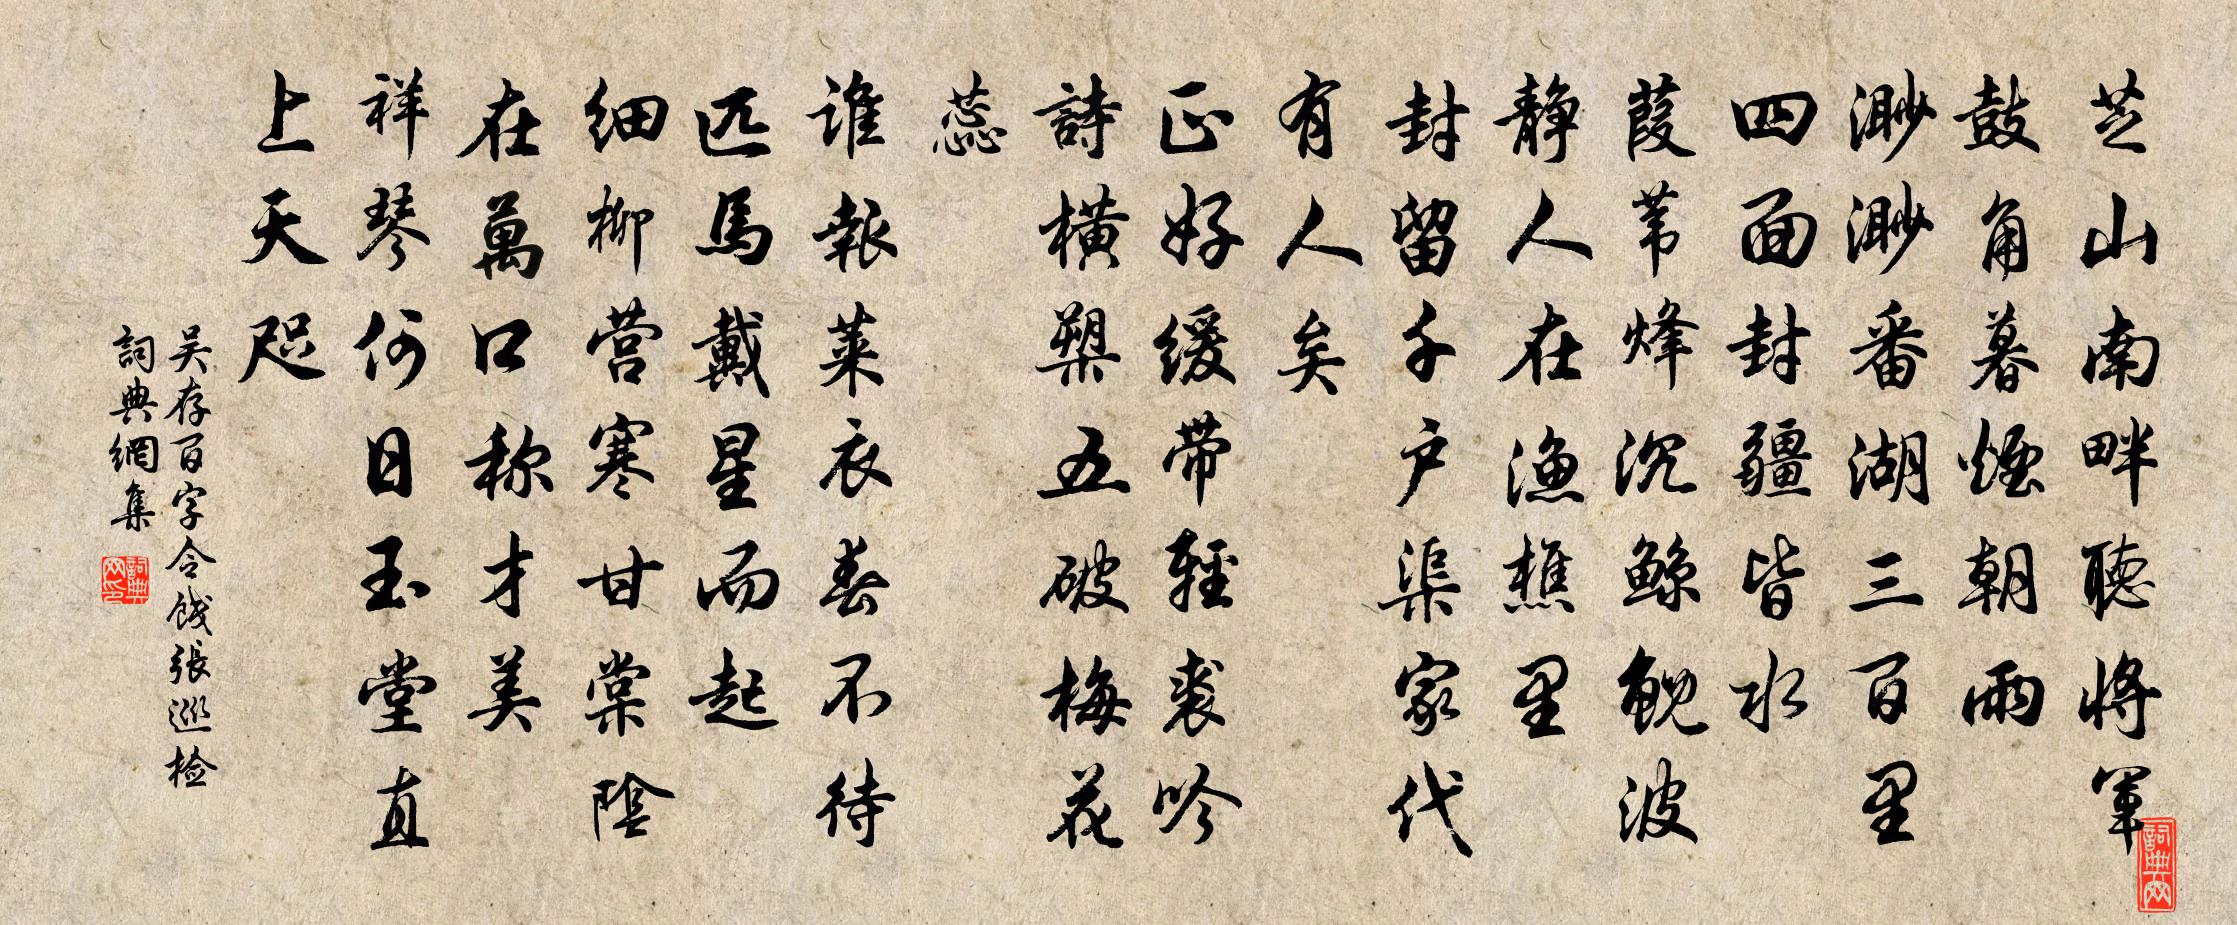 芝山南畔聽將軍
鼓角暮煙朝雨
渺渺番湖三百里
四面封疆皆水
葭苇烽沉鲸鲵波
静人在漁樵里
封留千户渠家代
有人矣
正好缓带輕裘吟
詩横槊五破梅花
蕊
谁報菜衣春不待
匹馬戴星而起
细柳营寒甘棠陰
在萬口称才美
祥琴何日玉堂直
上天咫
吴存百字令餞張巡检
詞典網集
詞典网印
詞典网